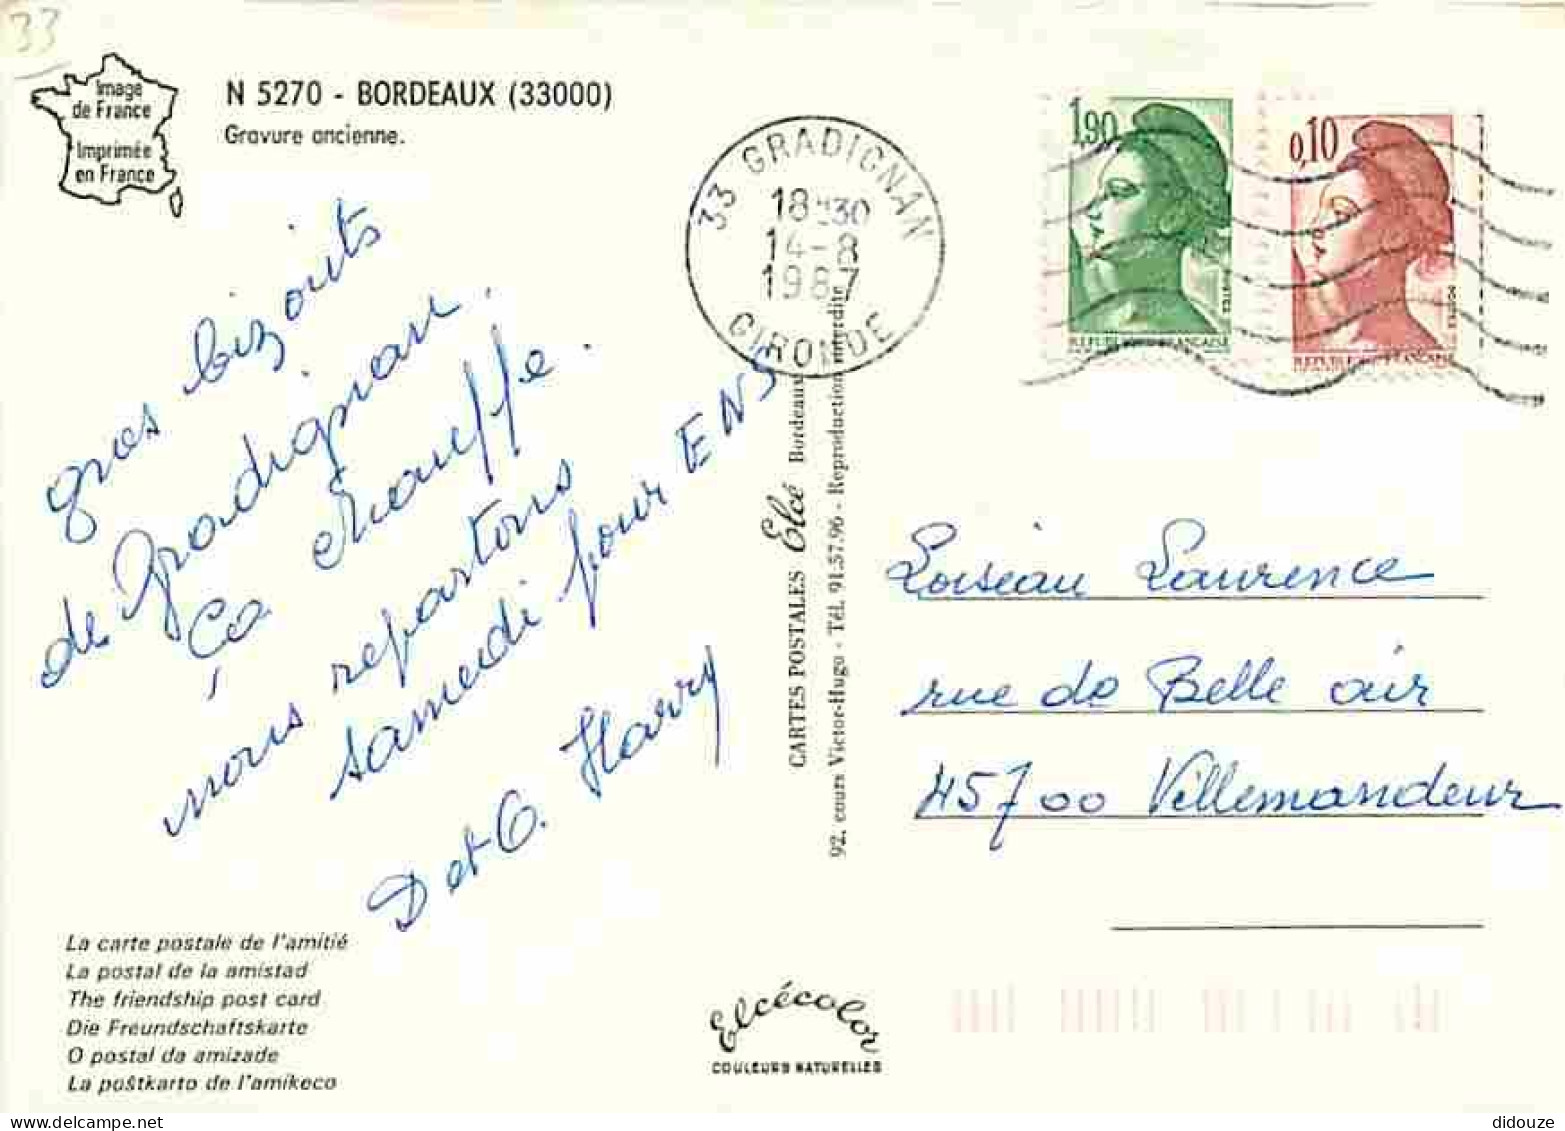 33
Image
de France
Imprimée
en France
N 5270 - BORDEAUX (33000)
Gravure ancienne.
33 GRADIGNAN
18H30
14-8
1987
GIRONDE
1,90
REPUBLIQUE FRANÇAISE
POSTES
0,10
REPUBLIQUE FRANÇAISE
POSTES
gros bizouts
de Gradignan.
Ça chauffe.
nous repartons
samedi pour ENS
D et O. Harry
CARTES POSTALES Elcé Bordeaux
92, cours Victor-Hugo - Tél. 91.57.96 - Reproduction interdite
Loiseau Laurence
rue de Belle air
45700 Villemandeur
La carte postale de l'amitié
La postal de la amistad
The friendship post card
Die Freundschaftskarte
O postal da amizade
La poŝtkarto de l'amikeco
Elcécolor
COULEURS NATURELLES
didouze